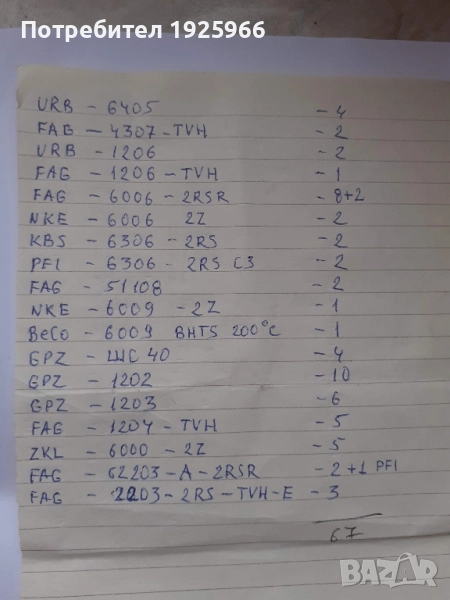 Потребител 1925966
URB - 6405 - 4
FAG - 4307 - TVH - 2
URB - 1206 - 2
FAG - 1206 - TVH - 1
FAG - 6006 - 2RSR - 8+2
NKE - 6006 2Z - 2
KBS - 6306 - 2RS - 2
PFI - 6306 - 2RS C3 - 2
FAG - 51108 - 2
NKE - 6009 - 2Z - 1
BeCo - 6009 BHTS 200°C - 1
GPZ - ШС 40 - 4
GPZ - 1202 - 10
GPZ - 1203 - 6
FAG - 1204 - TVH - 5
ZKL - 6000 - 2Z - 5
FAG - 62203 - A - 2RSR - 2 +1 PFI
FAG - 2203 - 2RS - TVH - E - 3
67
BAZAR